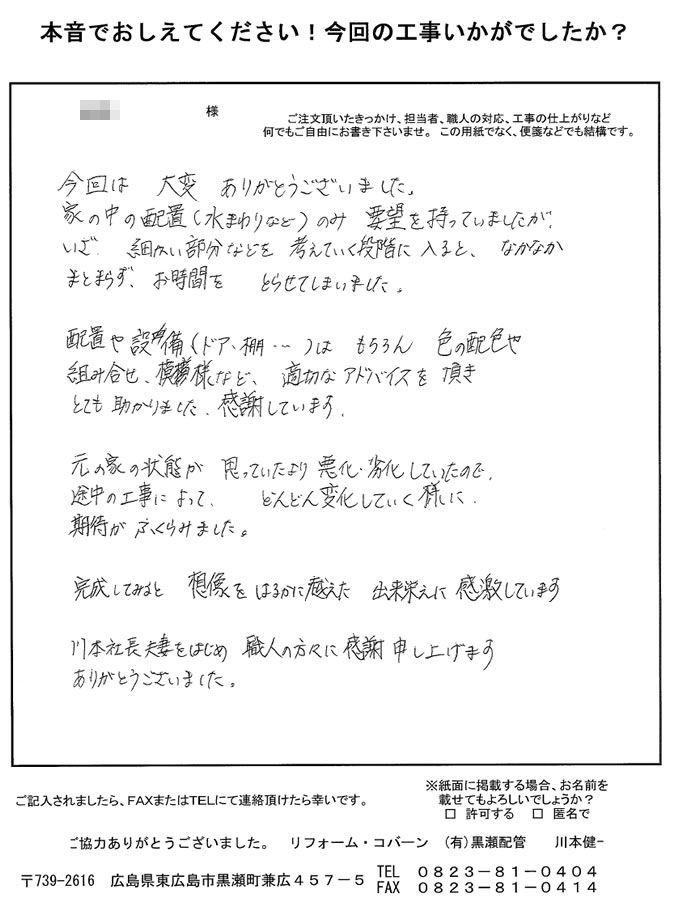 本音でおしえてください！今回の工事いかがでしたか？
様
ご注文頂いたきっかけ、担当者、職人の対応、工事の仕上がりなど
何でもご自由にお書き下さいませ。この用紙でなく、便箋などでも結構です。
今回は 大変 ありがとうございました。
家の中の配置(水まわりなど)のみ 要望を持っていましたが、
いざ、細かい部分などを 考えていく段階に入ると、なかなか
まとまらず、お時間を とらせてしまいました。
配置や設備(ドア、棚…)は もちろん 色の配色や
組み合せ、模様など、適切なアドバイスを頂き
とても助かりました。感謝しています。
元の家の状態が 思っていたより 悪化・劣化していたので、
途中の工事によって、 どんどん変化していく様に、
期待が ふくらみました。
完成してみると 想像を はるかに越えた 出来栄えに 感激しています
川本社長夫妻をはじめ 職人の方々に感謝申し上げます
ありがとうございました。
ご記入されましたら、FAXまたはTELにて連絡頂けたら幸いです。
※紙面に掲載する場合、お名前を
載せてもよろしいでしょうか？
□ 許可する □ 匿名で
ご協力ありがとうございました。 リフォーム・コバーン (有)黒瀬配管 川本健一
〒739-2616 広島県東広島市黒瀬町兼広４５７－５
TEL ０８２３－８１－０４０４
FAX ０８２３－８１－０４１４